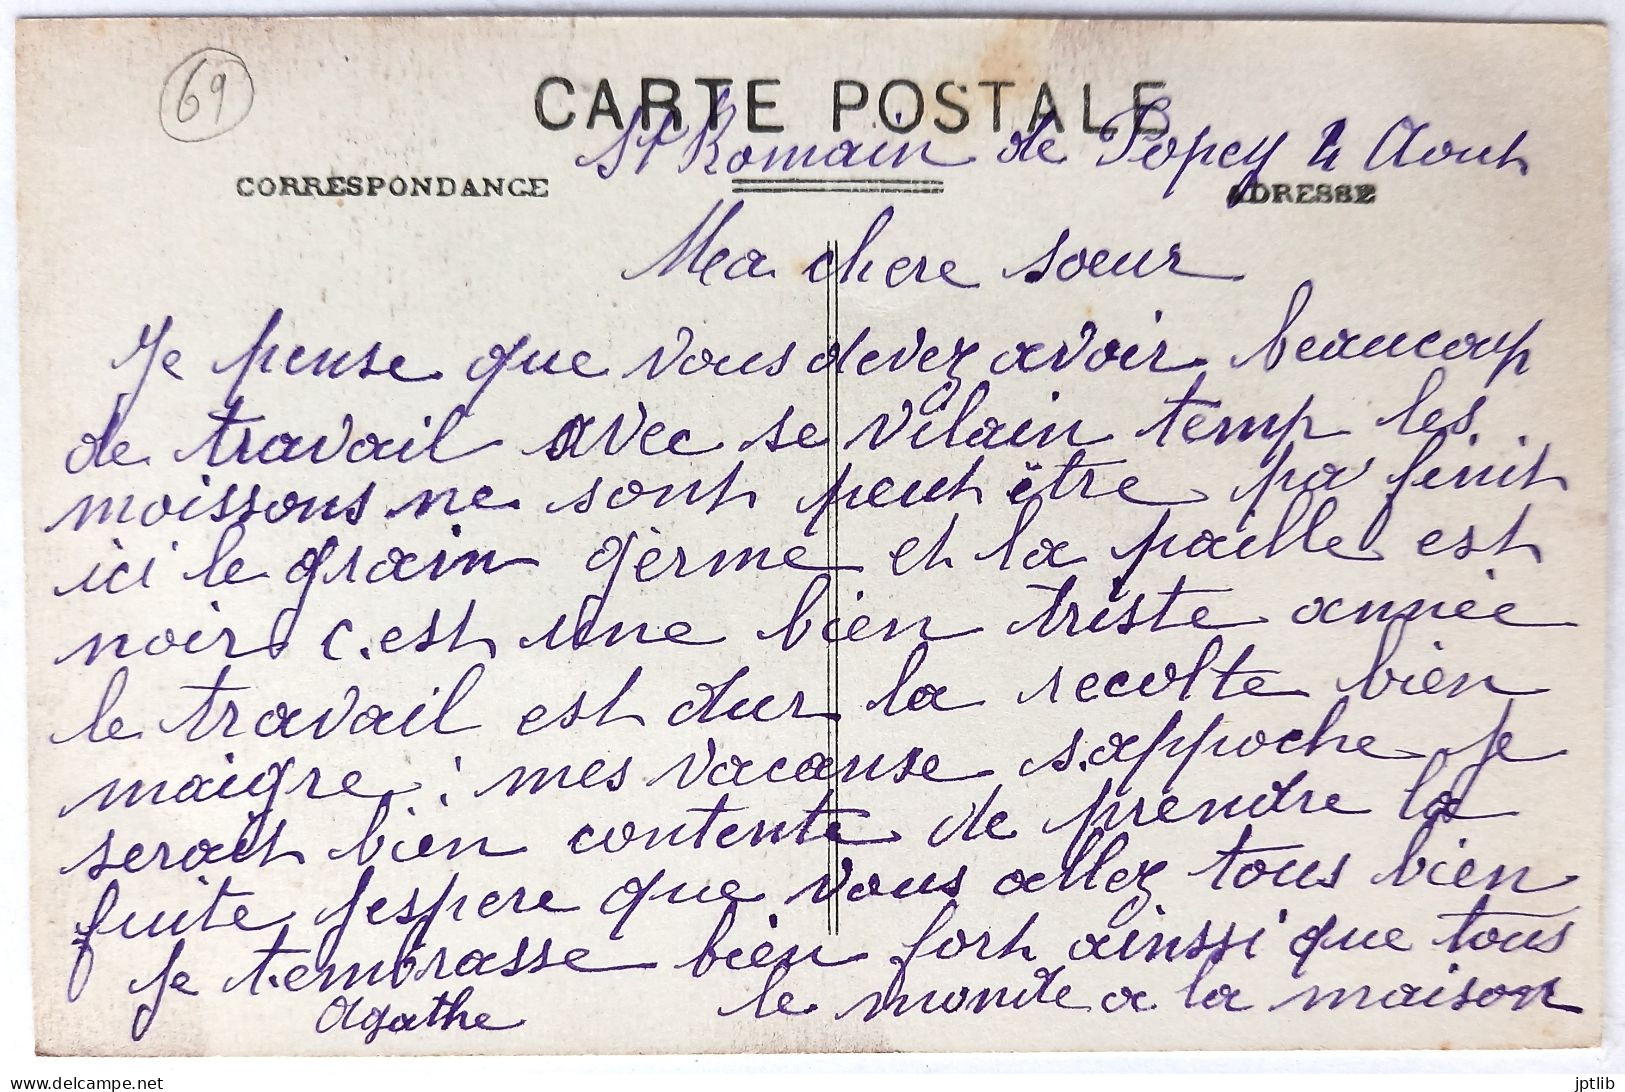 69
CARTE POSTALE
St Romain de Popey 2 Aout
CORRESPONDANCE
ADRESSE
Ma chere soeur
Je pense que vous devez avoir beaucoup
de travail avec se vilain temp les
moissons ne sont peut être pa finit
ici le grain gèrme et la paille est
noir. c.est une bien triste année
le travail est dur la recolte bien
maigre : mes vacanse s.appoche je
serait bien contente de prendre la
fuite j'espere que vous allez tous bien
Je t.embrasse bien fort ainssi que tous
le monde a la maison
Agathe
www.delcampe.net
jptlib